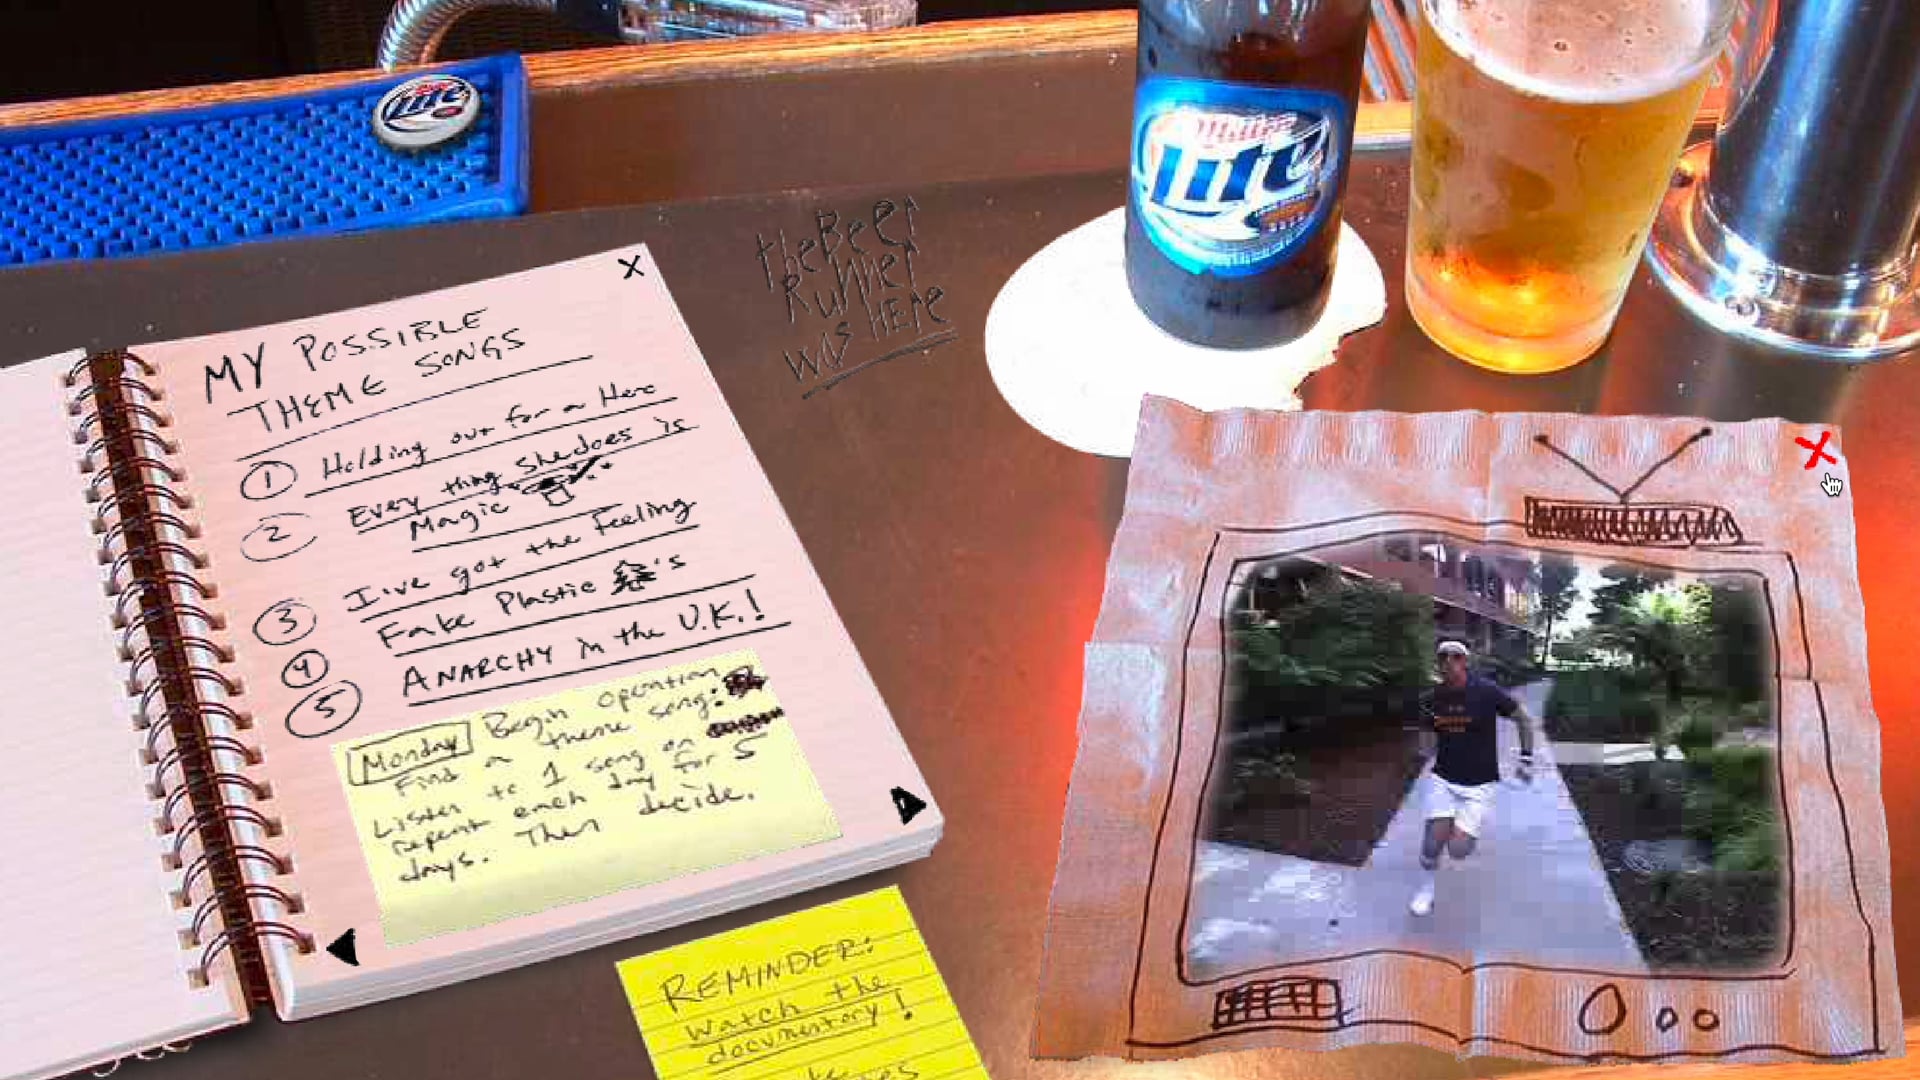 Lite
Miller
Lite
the Beer
Runner
was HERE
X
MY POSSIBLE
THEME SONGS
1 Holding out for a Hero
2 Every thing she does is
Magic
3 I've got the Feeling
4 Fake Plastic 's
5 ANARCHY in the U.K.!
Monday Begin operation
Find a theme song:
Listen to 1 song on
repeat each day for 5
days. Then decide.
REMINDER:
watch the
documentary!
X